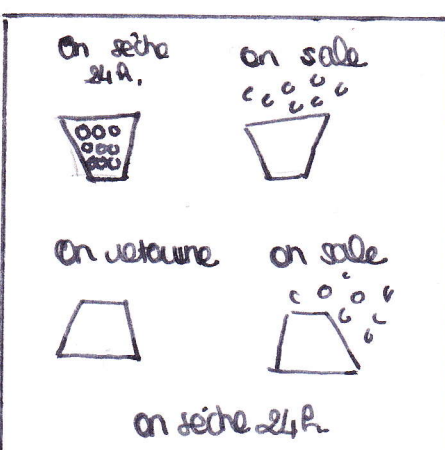 On sèche
24h.
on sale
On retourne
on sale
on sèche 24h